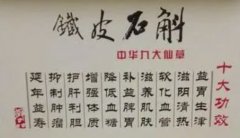 鐵皮石斛
中华九大仙草
十大功效
益胃生津
滋阴清热
软化血管
滋养肌肤
补益脾胃
降低血糖
增强体质
护肝利胆
抑制肿瘤
延年益寿